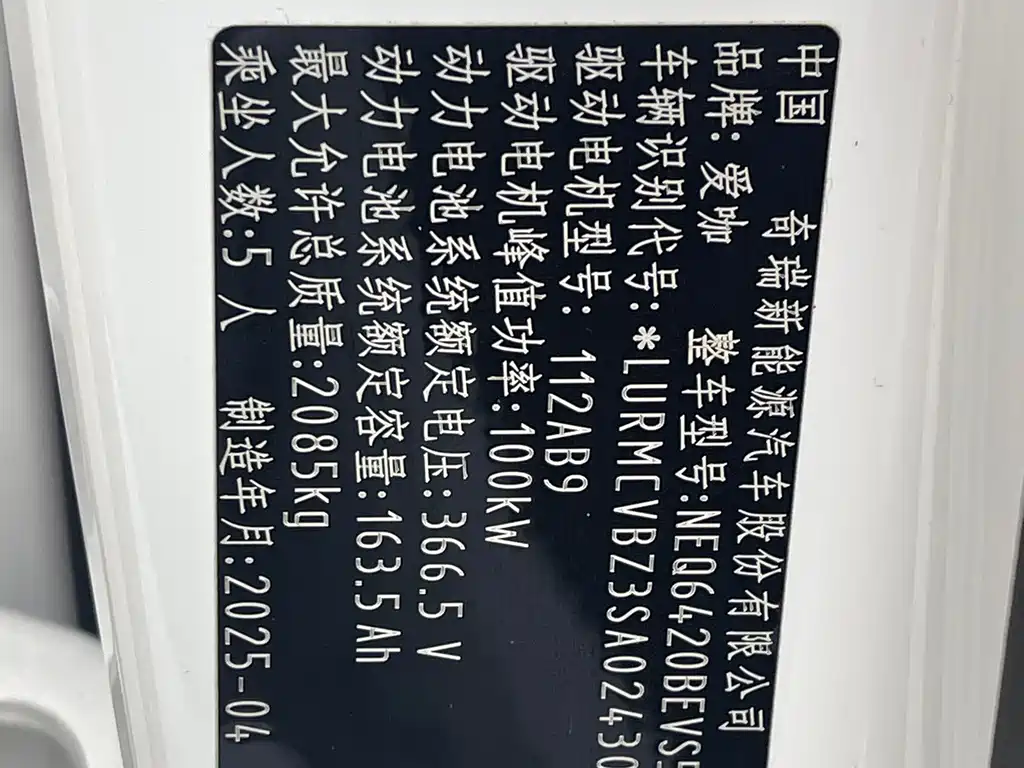 中国 奇瑞新能源汽车股份有限公司
品牌:爱咖 整车型号:NEQ6420BEVS
车辆识别代号:*LURMCVBZ3SA02430
驱动电机型号:112AB9
驱动电机峰值功率:100kW
动力电池系统额定电压:366.5 V
动力电池系统额定容量:163.5Ah
最大允许总质量:2085kg
乘坐人数:5 人 制造年月:2025-04